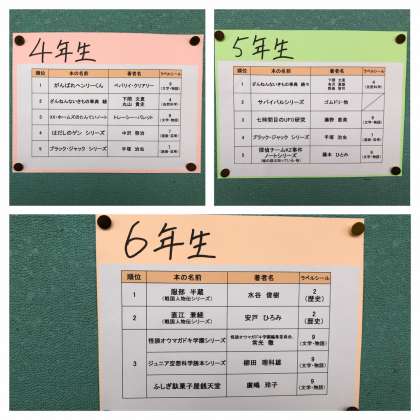 4年生
順位 本の名前 著者名 ラベルシール
1 がんばれヘンリーくん ベバリイ・クリアリー 9
(文学・物語)
2 ざんねんないきもの事典 続 下間 文恵 4
丸山 貴史 (自然科学)
3 XX・ホームズのたんていノート トレーシー・バレット 9
(文学・物語)
4 はだしのゲン シリーズ 中沢 啓治 7
5 ブラック・ジャック シリーズ 手塚 治虫 7
5年生
順位 本の名前 著者名 ラベルシール
1 ざんねんないきもの事典 続々 下間 文恵 4
(自然科学)
2 サバイバルシリーズ ゴムドリ・他
3 七時間目のUFO研究 藤野 恵美 9
(文学・物語)
4 ブラック・ジャック シリーズ 手塚 治虫 7
5 探偵チームKZ事件 藤本 ひとみ 9
ノートシリーズ (文学・物語)
6年生
順位 本の名前 著者名 ラベルシール
1 服部 半蔵 水谷 俊樹 2
(戦国人物伝シリーズ) (歴史)
2 直江 兼続 安戸 ひろみ 2
(戦国人物伝シリーズ) (歴史)
怪談オウマガドキ学園シリーズ 怪談オウマガドキ学園編集委員会、 9
常光 徹 (文学・物語)
3 ジュニア空想科学読本シリーズ 柳田 理科雄 9
(文学・物語)
ふしぎ駄菓子屋銭天堂 廣嶋 玲子 9
(文学・物語)